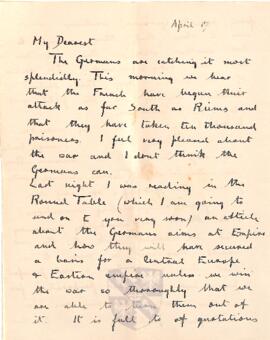 April 17
My Dearest
The Germans are catching it most
splendidly. This morning we hear
that the French have begun their
attack as far South as Reims and
that they have taken ten thousand
prisoners. I feel very pleased about
the war and I dont think the
Germans can.
Last night I was reading in the
Round Table (which I am going to
send on to you very soon) an article
about the Germans aims at Empire
and how they will have secured
a basis for a Central Europe
& Eastern empire unless we win
the war so thoroughly that we
are able to turn them out of
it. It is full of quotations